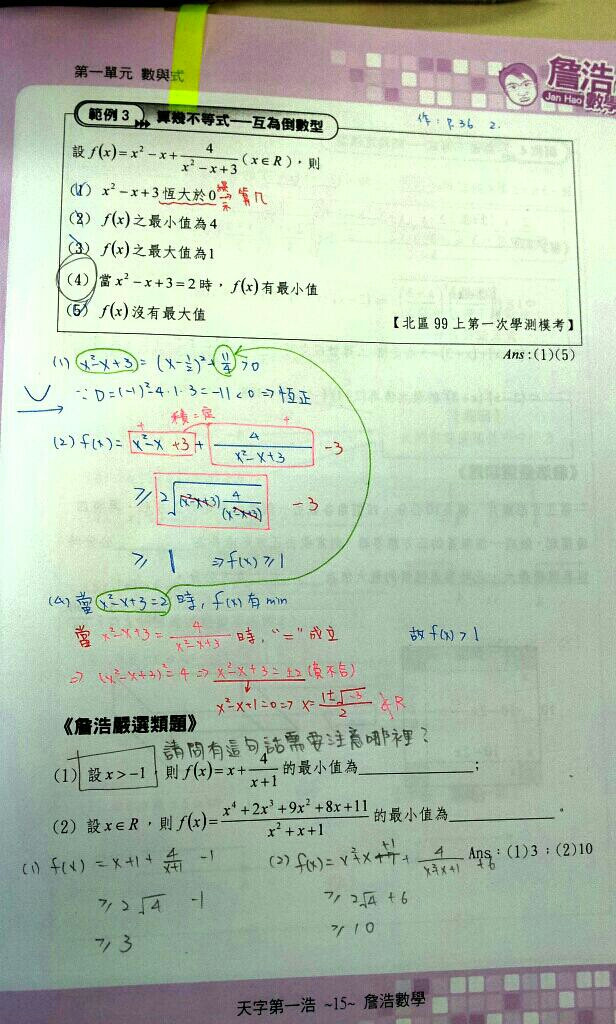 第一單元 數與式
詹浩
Jan Hao 數學
範例3 算幾不等式——互為倒數型
作：P.36 2.
設 f(x)=x²−x+4/(x²−x+3) (x∈R)，則
(1) x²−x+3恆大於0 暗示→算几
(2) f(x)之最小值為4
(3) f(x)之最大值為1
(4) 當x²−x+3=2時，f(x)有最小值
(5) f(x)沒有最大值
【北區99上第一次學測模考】
Ans:(1)(5)
(1) x²−x+3=(x−1/2)²+11/4>0
∵D=(−1)²−4·1·3=−11<0⇒恆正
積=定
+ +
(2) f(x)=x²−x+3+4/(x²−x+3) −3
≥2√((x²−x+3)4/(x²−x+3)) −3
≥ 1 ⇒f(x)≥1
(4) 當x²−x+3=2時，f(x)有min
當x²−x+3=4/(x²−x+3)時，"="成立 故f(x)>1
⇒(x²−x+3)²=4⇒x²−x+3=±2(負不合)
x²−x+1=0⇒x=(1±√−3)/2∉R
《詹浩嚴選類題》
請問有這句話需要注意哪裡？
(1) 設x>−1，則f(x)=x+4/(x+1)的最小值為＿＿＿＿＿；
(2) 設x∈R，則f(x)=(x⁴+2x³+9x²+8x+11)/(x²+x+1)的最小值為＿＿＿＿＿。
Ans：(1)3；(2)10
(1) f(x)=x+1+4/(x+1) −1
≥2√4 −1
≥3
(2) f(x)=x²+x+1+4/(x²+x+1) +6
≥2√4+6
≥10
天字第一浩 ~15~ 詹浩數學